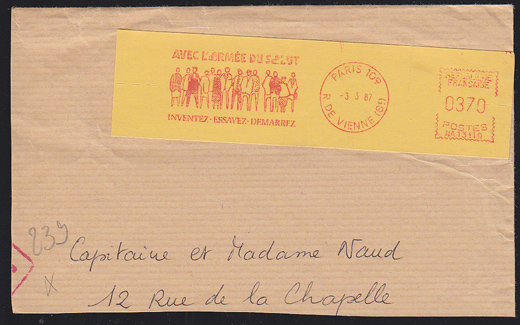 AVEC L'ARMÉE DU SALUT
INVENTEZ · ESSAYEZ · DEMARREZ
PARIS 109
-3 3 87
R. DE VIENNE (8e)
REPUBLIQUE
FRANÇAISE
0370
POSTES
239
Capitaine et Madame Naud
12 Rue de la Chapelle